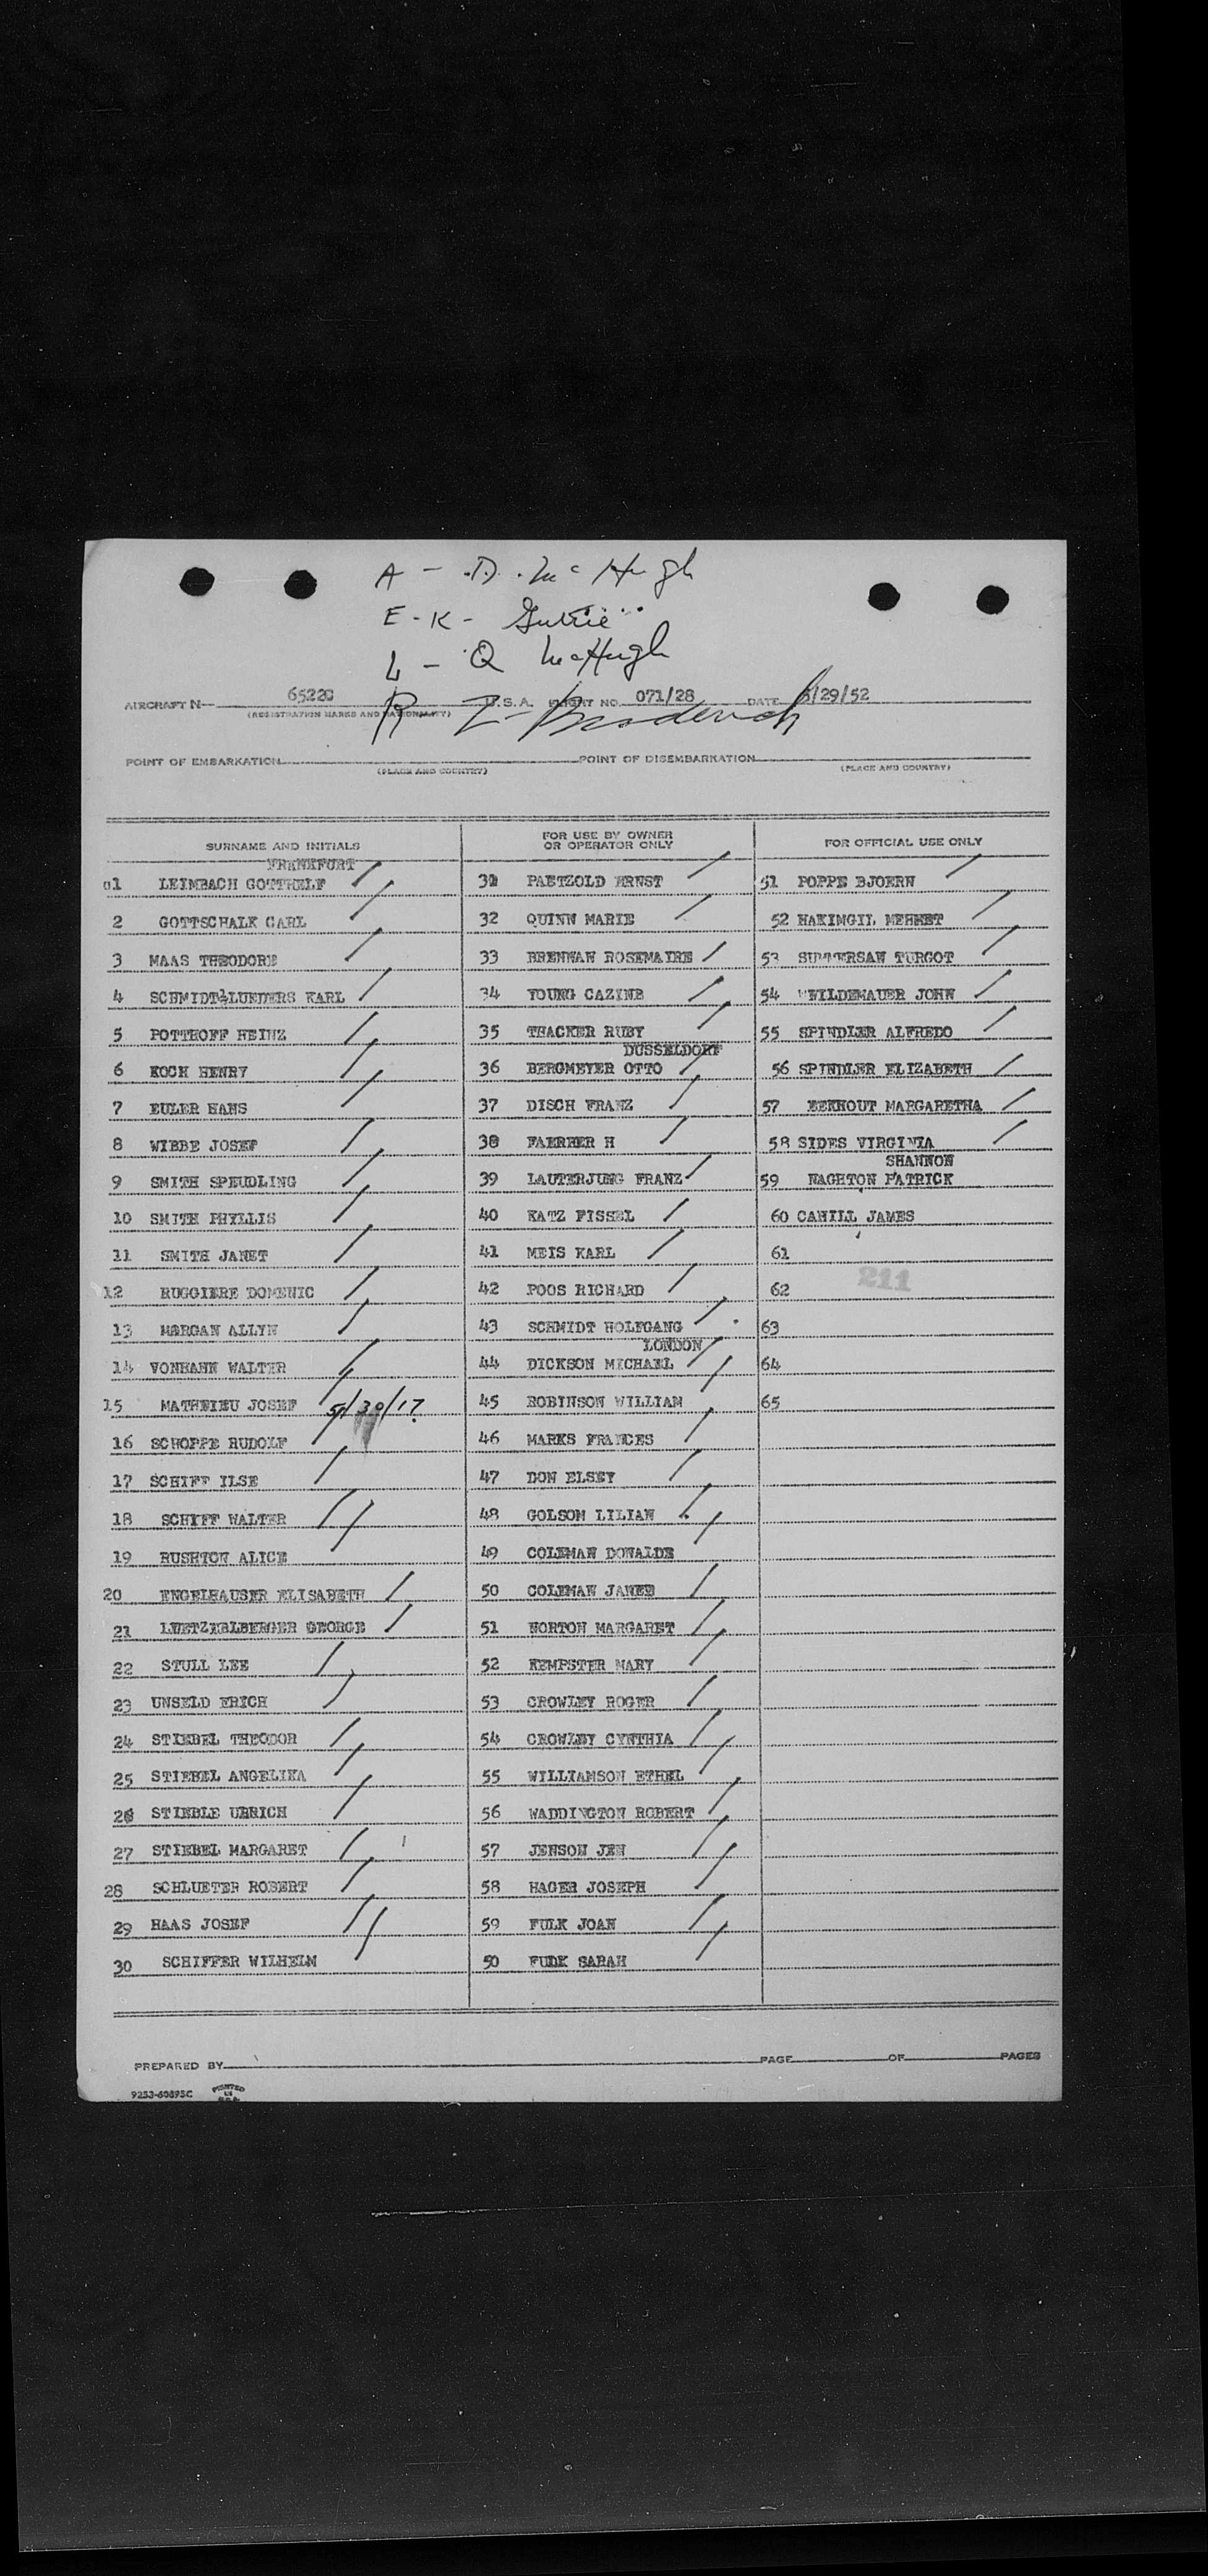 A - D. McHugh
E - K - Guthrie
L - Q McHugh
R - Z - Broderick
AIRCRAFT N- 6522C U.S.A. FLIGHT NO. 071/28 DATE 5/29/52
(REGISTRATION MARKS AND NATIONALITY)
POINT OF EMBARKATION POINT OF DISEMBARKATION
(PLACE AND COUNTRY) (PLACE AND COUNTRY)
SURNAME AND INITIALS
FRANKFURT
01 LEIMBACH GOTTHELF
2 GOTTSCHALK CARL
3 MAAS THEODORE
4 SCHMIDT-LUEDERS KARL
5 POTTHOFF HEINZ
6 KOCH HENRY
7 EULER HANS
8 WIBBE JOSEF
9 SMITH SPEUDLING
10 SMITH PHYLLIS
11 SMITH JANET
12 RUGGIERE DOMENIC
13 MORGAN ALLYN
14 VONHAHN WALTER
15 MATHEIEU JOSEF 5/30/17
16 SCHOPPE RUDOLF
17 SCHIFF ILSE
18 SCHIFF WALTER
19 RUSHTON ALICE
20 ENGELHAUSER ELISABETH
21 LUETZELBERGER GEORGE
22 STULL LEE
23 UNSELD ERICH
24 STIEBEL THEODOR
25 STIEBEL ANGELIKA
26 STIEBLE URRICH
27 STIEBEL MARGARET
28 SCHLUETER ROBERT
29 HAAS JOSEF
30 SCHIFFER WILHELM
FOR USE BY OWNER
OR OPERATOR ONLY
31 PAETZOLD ERNST
32 QUINN MARIE
33 BRENNAN ROSEMAIRE
34 YOUNG CAZINE
35 THACKER RUBY
DUSSELDORF
36 BERGMEYER OTTO
37 DISCH FRANZ
38 FAERBER H
39 LAUTERJUNG FRANZ
40 KATZ FISSEL
41 MEIS KARL
42 POOS RICHARD
43 SCHMIDT HOLFGANG
LONDON
44 DICKSON MICHAEL
45 ROBINSON WILLIAM
46 MARKS FRANCES
47 DON ELSEY
48 GOLSOM LILIAN
49 COLEMAN DONALDE
50 COLEMAN JANEE
51 NORTON MARGARET
52 KEMPSTER MARY
53 CROWLEY ROGER
54 CROWLEY CYNTHIA
55 WILLIAMSON ETHEL
56 WADDINGTON ROBERT
57 JENSON JEN
58 HAGER JOSEPH
59 FULK JOAN
50 FUDK SARAH
FOR OFFICIAL USE ONLY
51 POPPE BJOERN
52 HAKIMGIL MEHMET
53 TURGOT
54 WEILDEMAUER JOHN
55 SPINDLER ALFREDO
56 SPINDLER ELIZABETH
57 EEKHOUT MARGARETHA
58 SIDES VIRGINIA
SHANNON
59 NAGHTON PATRICK
60 CAHILL JAMES
61
62 211
63
64
65
PREPARED BY PAGE OF PAGES
9253-60895C PRINTED
IN
U.S.A.